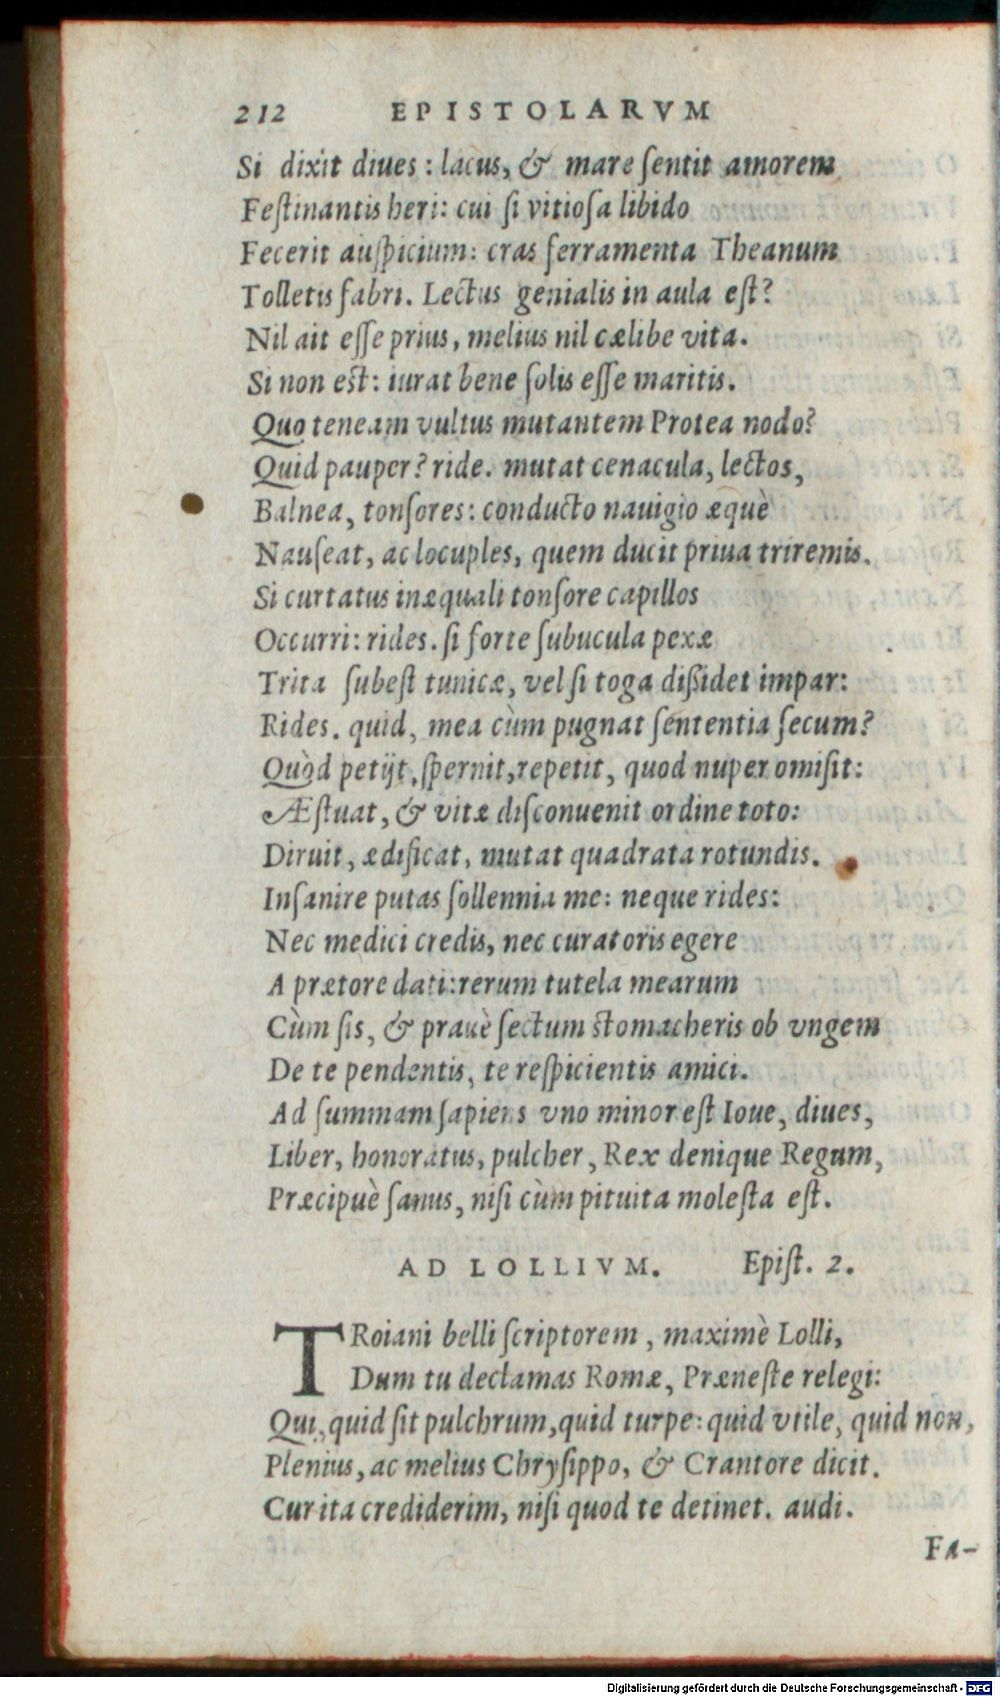 212 EPISTOLARVM
Si dixit diues: lacus, & mare ſentit amorem
Feſtinantis heri: cui ſi vitioſa libido
Fecerit auſpicium: cras ferramenta Theanum
Tolletis fabri. Lectus genialis in aula eſt?
Nil ait eſſe prius, melius nil cælibe vita.
Si non eſt: iurat bene ſolis eſſe maritis.
Quo teneam vultus mutantem Protea nodo?
Quid pauper? ride. mutat cenacula, lectos,
Balnea, tonſores: conducto nauigio æquè
Nauſeat, ac locuples, quem ducit priua triremis.
Si curtatus inæquali tonſore capillos
Occurri: rides. ſi forte ſubucula pexæ
Trita ſubeſt tunicæ, vel ſi toga diſsidet impar:
Rides. quid, mea cùm pugnat ſententia ſecum?
Quòd petijt, ſpernit, repetit, quod nuper omiſit:
Æſtuat, & vitæ diſconuenit ordine toto:
Diruit, ædificat, mutat quadrata rotundis.
Inſanire putas ſollennia me: neque rides:
Nec medici credis, nec curatoris egere
A prætore dati: rerum tutela mearum
Cùm ſis, & prauè ſectum ſtomacheris ob vngem
De te pendentis, te reſpicientis amici.
Ad ſummam ſapiens vno minor eſt Ioue, diues,
Liber, honoratus, pulcher, Rex denique Regum,
Præcipuè ſanus, niſi cùm pituita moleſta eſt.
AD LOLLIVM. Epiſt. 2.
TRoiani belli ſcriptorem, maximè Lolli,
Dum tu declamas Romæ, Præneſte relegi:
Qui, quid ſit pulchrum, quid turpe: quid vtile, quid non,
Plenius, ac melius Chryſippo, & Crantore dicit.
Cur ita crediderim, niſi quod te detinet. audi.
Fa-
Digitalisierung gefördert durch die Deutsche Forschungsgemeinschaft - DFG